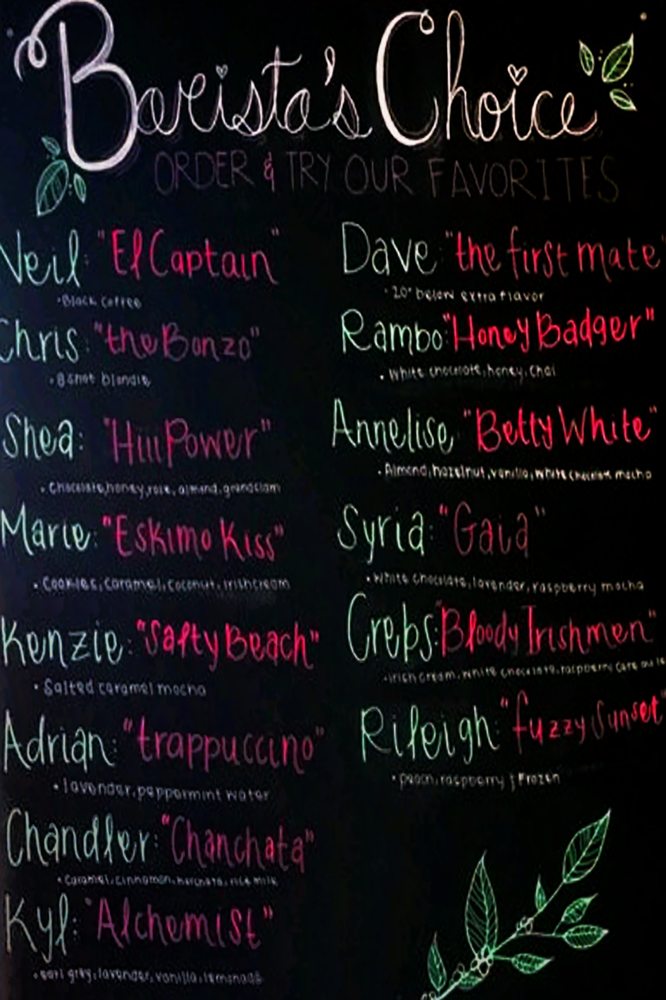 Barista's Choice
ORDER & TRY OUR FAVORITES
Neil: "El Captain"
•Black coffee
Chris: "the Bonzo"
•8 shot blondie
Shea: "Hill Power"
•Chocolate, honey, rose, almond, grandslam
Marie: "Eskimo Kiss"
•Cookies, caramel, coconut, irishcream
Kenzie: "Salty Beach"
•Salted caramel mocha
Adrian: "trappuccino"
•lavender, peppermint water
Chandler: "Chanchata"
•Caramel, cinnamon, horchata, rice milk
Kyl: "Alchemist"
•earl grey, lavender, vanilla, lemonade
Dave "the first mate"
•20° below extra flavor
Rambo: "Honey Badger"
•White chocolate, honey, chai
Annelise, "Betty White"
•Almond, hazelnut, vanilla, white chocolate mocha
Syria: "Gaia"
•White chocolate, lavender, raspberry mocha
Creps: "Bloody Irishmen"
•irish cream, white chocolate, raspberry
Rileigh: "fuzzy Sunset"
•peach, raspberry, frozen